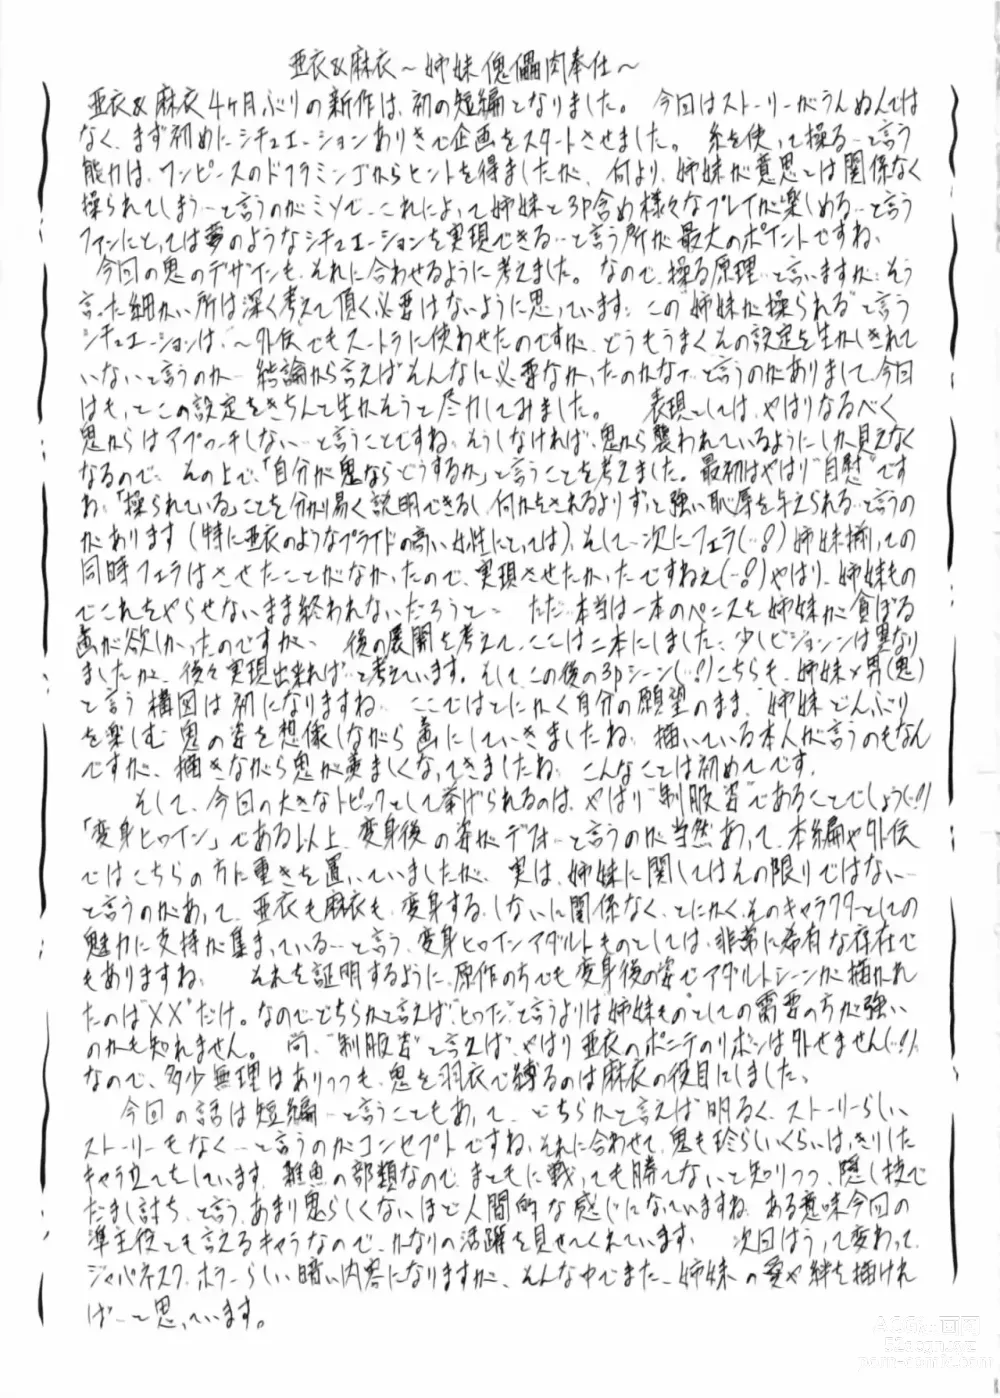 亜衣&麻衣～姉妹傀儡肉奉仕～
亜衣&麻衣4ヶ月ぶりの新作は、初の短編となりました。 今回はストーリーがうんぬんでは
なく、まず初めにシチュエーションありきで企画をスタートさせました。 糸を使って操る…と言う
能力は、ワンピースのドフラミンゴからヒントを得ましたが、何より、姉妹が意思とは関係なく
操られてしまう…と言うのがミソで、これによって姉妹と3P含め様々なプレイが楽しめる…と言う
ファンにとっては夢のようなシチュエーションを実現できる…と言う所が最大のポイントですね。
今回の鬼のデザインも、それに合わせるように考えました。なので、操る原理…と言いますか…そう
言った細かい所は深く考えて頂く必要はないように思っています。この"姉妹が操られる"と言う
シチュエーションは、～外伝でもスートラに使わせたのですが、どうもうまくその設定を生かしきれて
いない…と言うのか…結論から言えばそんなに必要なかったのかなァ…と言うのがありまして、今回
はもっとこの設定をきちんと生かそうと尽力してみました。 表現としては、やはりなるべく
鬼からはアプローチしない…と言うことですね。そうしなければ、鬼から襲われているようにしか見えなく
なるので、その上で、「自分が鬼ならどうするか」と言うことを考えました。最初はやはり"自慰"です
ね。「操られている」ことを分かり易く説明できるし、何かをされるよりずっと強い恥辱を与えられる…と言うの
があります(特に亜衣のようなプライドの高い女性にとっては)、そして…次にフェラ(…!)姉妹揃っての
同時フェラはさせたことがなかったので、実現させたかったですねぇ(…!)やはり、姉妹もの
でこれをやらせないまま終われないだろうと… ただ…本当は一本のペニスを姉妹が貪ぼる
画が欲しかったのですが、 後の展開を考えて、ここは二本にしました…少しビジョンは異なり
ましたが、後々実現出来れば…と考えています。そしてこの後の3Pシーン(…!)こちらも、姉妹×男(鬼)
と言う構図は初になりますね。 ここではとにかく自分の願望のまま"姉妹どんぶり
を楽しむ"鬼の姿を想像しながら画にしていきましたね。描いている本人が言うのもなん
ですが、描きながら鬼が羨ましくなってきましたね。 こんなことは初めてです。
そして、今回の大きなトピックとして挙げられるのは、やはり"制服姿"であることでしょう(…!)
「変身ヒロイン」である以上、変身後の姿がデフォ…と言うのが当然あって、本編や外伝
ではこちらの方に重きを置いていましたが、 実は、姉妹に関してはその限りではない…
と言うのがあって、亜衣も麻衣も、変身する、しないに関係なく、とにかくそのキャラクターとしての
魅力に支持が集まっている…と言う、変身ヒロインアダルトものとしては、非常に希有な存在で
もありますね。 それを証明するように、原作の内でも変身後の姿でアダルトシーンが描かれ
たのは"XX"だけ。なので…どちらかと言えば"ヒロイン"と言うよりは姉妹ものとしての需要の方が強い
のかも知れません。 尚、"制服姿"と言えば、やはり亜衣のポニテのリボンは外せません(…!)
なので、多少無理はありつつも、鬼を羽衣で縛るのは麻衣の役目にしました。
今回の話は短編…と言うこともあって…どちらかと言えば明るく、ストーリーらしい
ストーリーもなく…と言うのがコンセプトですね。それに合わせて、鬼も珍らしいくらいはっきりした
キャラ立てをしています。雑魚の部類なので、まともに戦っても勝てない…と知りつつ、隠し技で
だまし討ち…と言う、あまり鬼らしくないほど人間的な感じになっていますね。ある意味今回の
準主役とも言えるキャラなので、かなりの活躍を見せてくれています。 次回はうって変わって、
ジャパネスク・ホラーらしい暗い内容になりますが、そんな中でまた…姉妹の愛や絆を描けれ
ば…と思っています。
ACG漫画网
52acgxyz
porn-comic.com